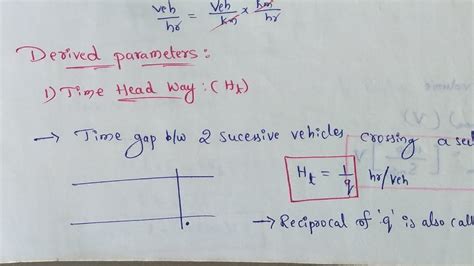 veh/hr = veh/km × km/hr
Derived parameters :
1) Time Head Way : (Ht)
→ Time gap b/w 2 sucessive vehicles crossing a
Ht = 1/q hr/veh
→ Reciprocal of 'q' is also